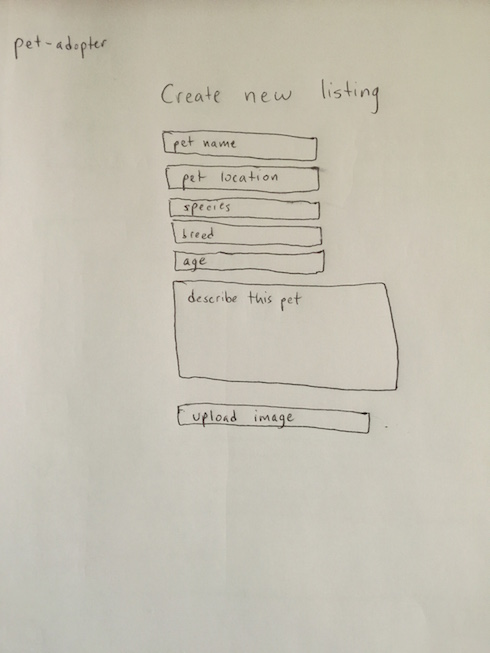 pet-adopter
Create new listing
pet name
pet location
species
breed
age
describe this pet
upload image